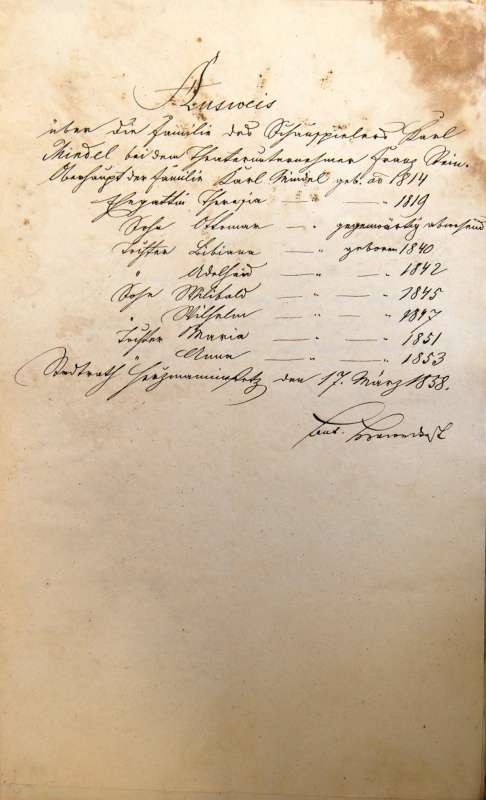 Ausweis
über die Familie des Schauspielers Karl
Windel bei dem Theaterunternehmer Franz Stein.
Oberhaupt der Familie Karl Windel geb. ao 1814
Ehegattin Theresia — „ — 1819
Sohn Ottomar — „ gegenwärtig abwesend
Tochter Bibiana — „ geboren 1840
„ Adelheid — „ — 1842
Sohn Wilibald — „ — „ 1845
„ Wilhelm — „ — „ 1847
Tochter Maria — „ — „ 1851
„ Anna — „ — „ 1853
Stadtrath den 17. März 1858.